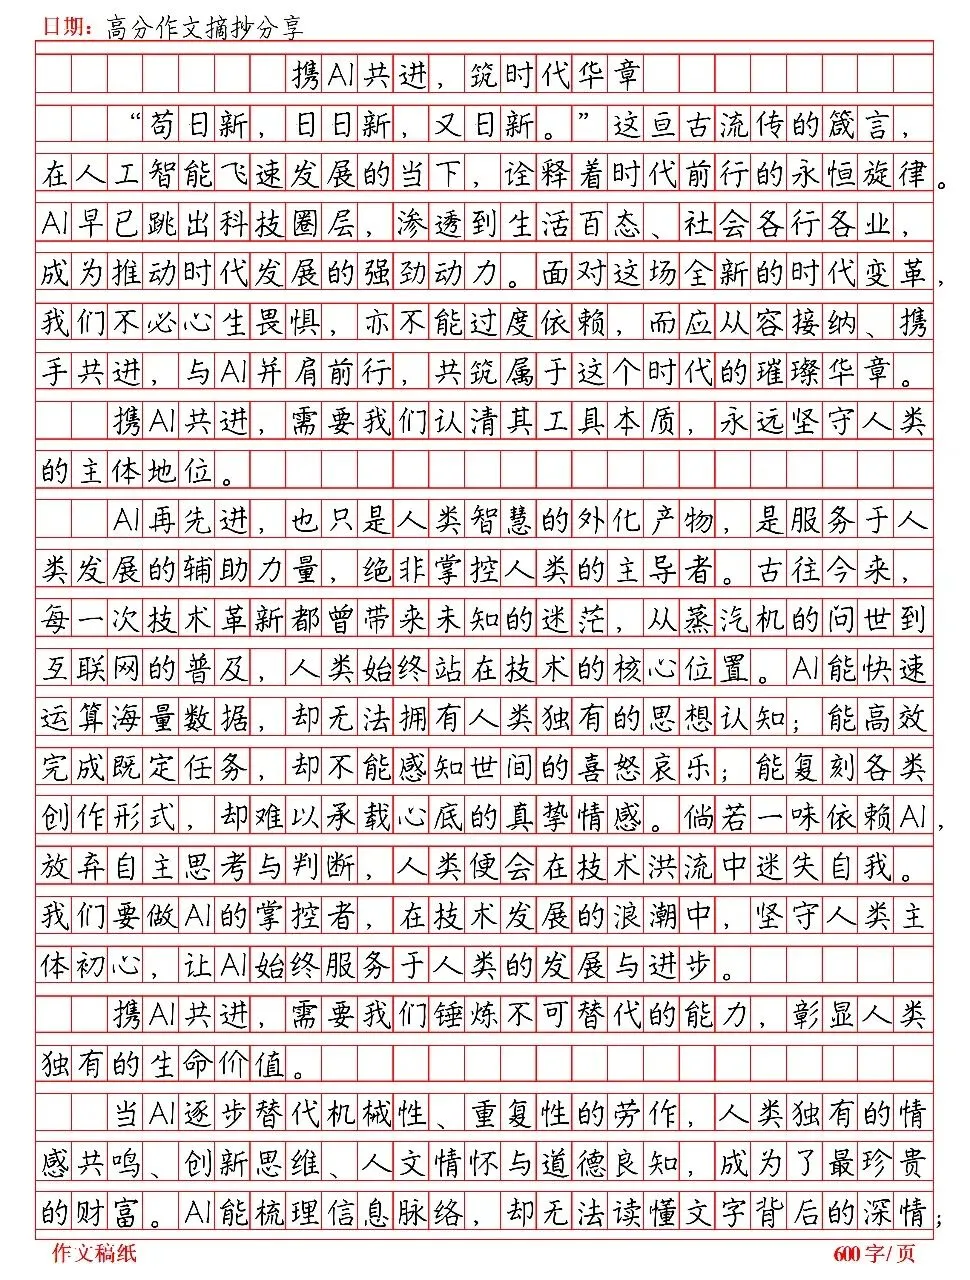 日期：高分作文摘抄分享
携AI共进，筑时代华章
“苟日新，日日新，又日新。”这亘古流传的箴言，
在人工智能飞速发展的当下，诠释着时代前行的永恒旋律。
AI早已跳出科技圈层，渗透到生活百态、社会各行各业，
成为推动时代发展的强劲动力。面对这场全新的时代变革，
我们不必心生畏惧，亦不能过度依赖，而应从容接纳、携
手共进，与AI并肩前行，共筑属于这个时代的璀璨华章。
携AI共进，需要我们认清其工具本质，永远坚守人类
的主体地位。
AI再先进，也只是人类智慧的外化产物，是服务于人
类发展的辅助力量，绝非掌控人类的主导者。古往今来，
每一次技术革新都曾带来未知的迷茫，从蒸汽机的问世到
互联网的普及，人类始终站在技术的核心位置。AI能快速
运算海量数据，却无法拥有人类独有的思想认知；能高效
完成既定任务，却不能感知世间的喜怒哀乐；能复刻各类
创作形式，却难以承载心底的真挚情感。倘若一味依赖AI，
放弃自主思考与判断，人类便会在技术洪流中迷失自我。
我们要做AI的掌控者，在技术发展的浪潮中，坚守人类主
体初心，让AI始终服务于人类的发展与进步。
携AI共进，需要我们锤炼不可替代的能力，彰显人类
独有的生命价值。
当AI逐步替代机械性、重复性的劳作，人类独有的情
感共鸣、创新思维、人文情怀与道德良知，成为了最珍贵
的财富。AI能梳理信息脉络，却无法读懂文字背后的深情；
作文稿纸
600字/页